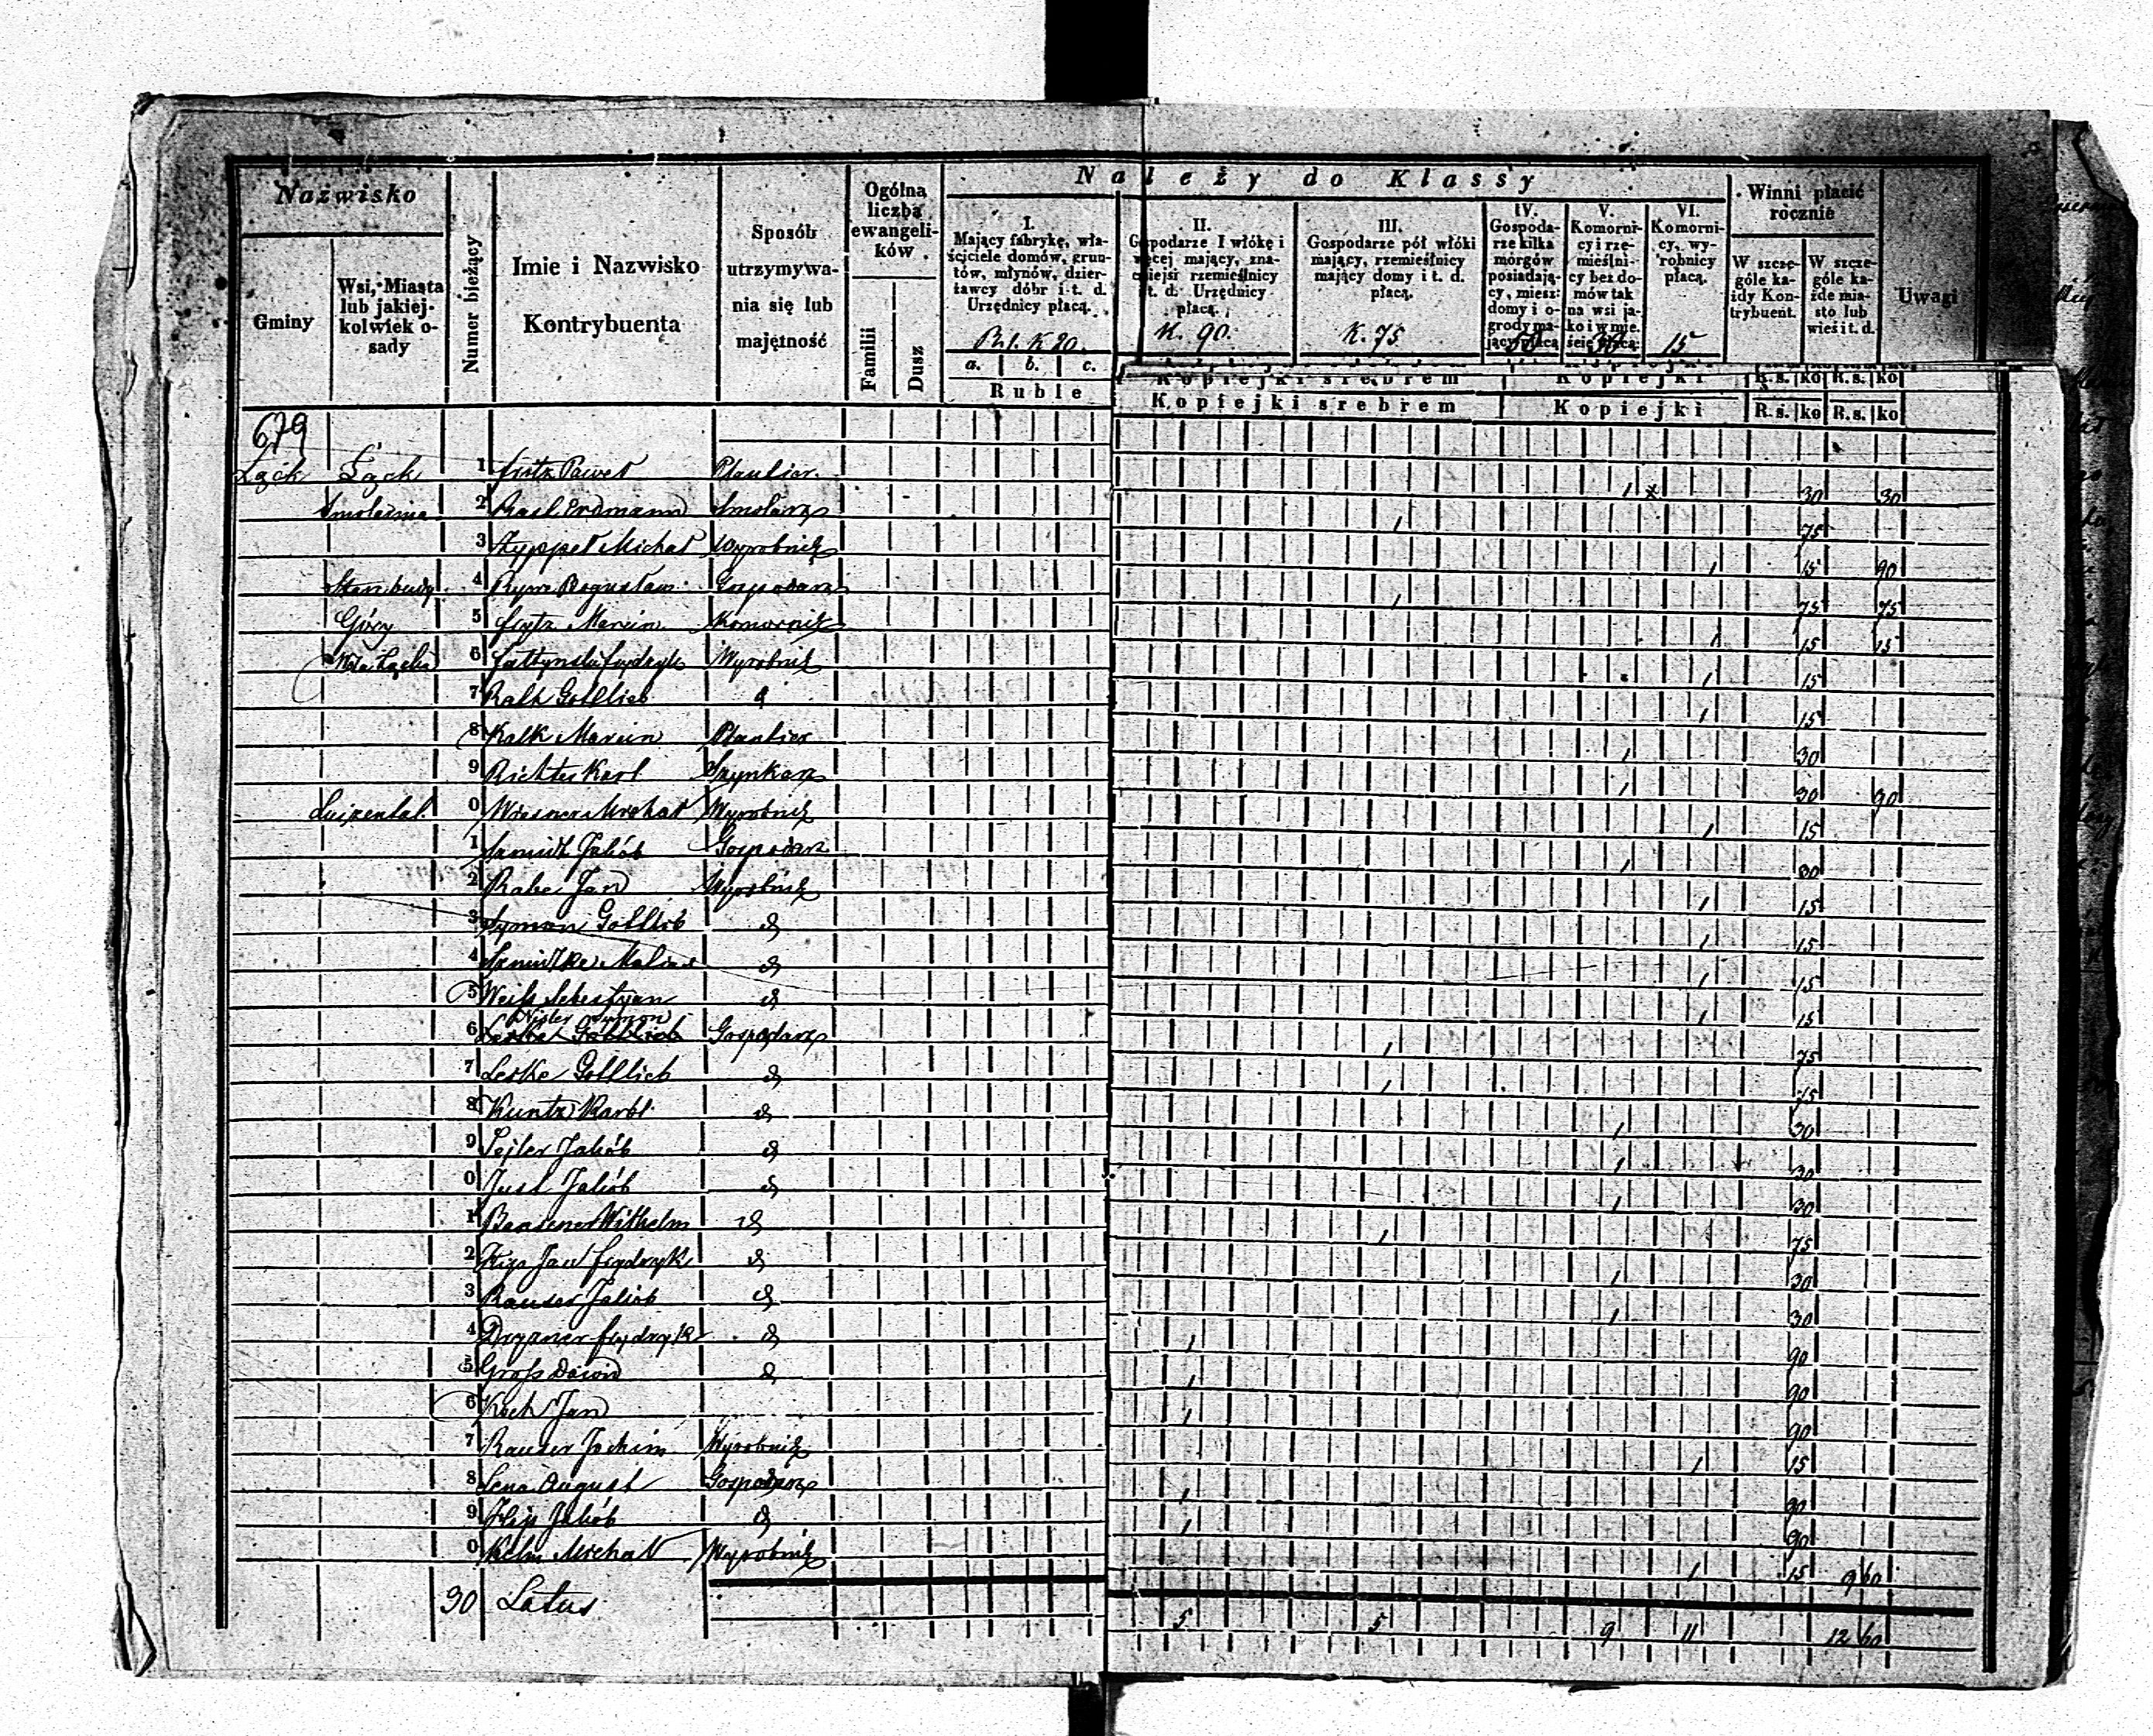 Nazwisko
Gminy
Wsi, Miasta lub jakiejkolwiek osady
Numer bieżący
Imie i Nazwisko Kontrybuenta
Sposób utrzymywania się lub majętność
Ogólna liczba ewangelików
Familii
Dusz
Należy do Klassy
I. Mający fabrykę, właściciele domów, gruntów, młynów, dzierżawcy dóbr i t. d. Urzędnicy płacą.
R. 1. K 20.
II. Gospodarze 1 włókę i więcej mający, znaczniejsi rzemieślnicy i t. d. Urzędnicy płacą.
K. 90.
III. Gospodarze pół włóki mający, rzemieślnicy mający domy i t. d. płacą.
K. 75
IV. Gospodarze kilka morgów posiadający, miesz: domy i ogrody mający płacą
V. Komornicy i rzemieślnicy bez domów tak na wsi jako i w mieście płacą:
30
VI. Komornicy, wyrobnicy płacą.
15
Winni płacić rocznie
W szczególe każdy Kontrybuent.
W szczególe każde miasto lub wieś i t. d.
Uwagi
a. b. c.
Ruble
Kopiejki srebrem
Kopiejki
R.s. ko R.s. ko
Kopiejki srebrem
Kopiejki
R.s. ko R.s. ko
679
Łąck Łąck 1 Fritz Paweł 1 30 30
2 Rasl Erdmann Smolarz 1 75
3 Michał Wyrobnik 1 15 90
4 Bogusław Gospodarz 1 75 75
Góry 5 Frytz Marcin Komornik 1 15 15
Wola Łącka 6 Frydryk Wyrobnik 1 15
7 Kalk Gottlieb d 1 15
8 Kalk Marcin 1 30
9 Richter Karl Szynkarz 1 30 90
Luizental. 0 Wiesner Michał Wyrobnik 1 15
1 Szmidt Jakób Gospodarz 1 30
2 Rabe Jan Wyrobnik 1 15
3 Szyman Gottlieb d 1 15
4 Szmidtke d 1 15
5 Weiss Sebestyan d 1 15
Szymon
6 Leske Gottlieb Gospodarz 1 75
7 Leske Gottlieb d 1 75
8 Kuntz Karol d 1 30
9 Sejler Jakób d 1 30
0 Just Jakób d 1 30
1 Wilhelm d 1 75
2 Jan Frydryk d 1 30
3 Rauser Jakób d 1 30
4 Frydryk d 1 90
5 Gross Dawid d 1 90
6 Koch Jan 1 90
7 Rauser Jochim Wyrobnik 1 15
8 Lenz August Gospodarz 1 90
9 Jakób d 1 90
0 Kelm Michał Wyrobnik 1 15 9 60
30 Latus 5 5 9 11 12 60